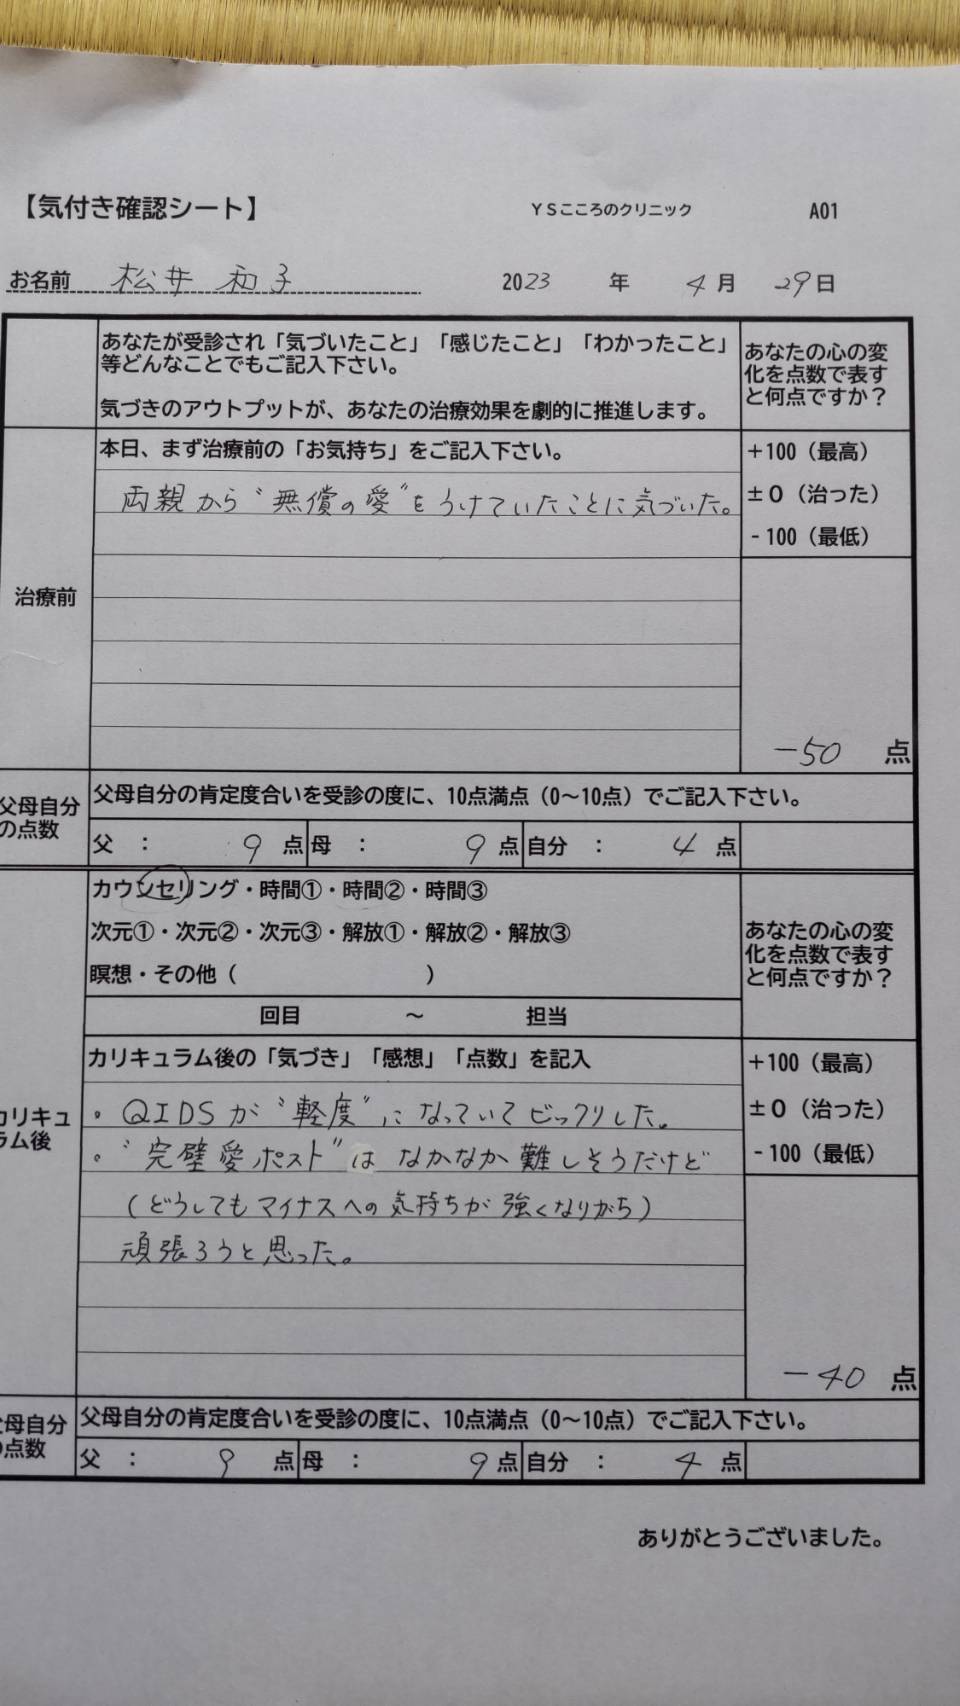 【気付き確認シート】 YSこころのクリニック A01
お名前 松井 和子 2023 年 4月 29日
あなたが受診され「気づいたこと」「感じたこと」「わかったこと」
等どんなことでもご記入下さい。
気づきのアウトプットが、あなたの治療効果を劇的に推進します。
あなたの心の変
化を点数で表す
と何点ですか？
治療前
本日、まず治療前の「お気持ち」をご記入下さい。
両親から〝無償の愛〟をうけていたことに気づいた。
+100（最高）
±0（治った）
-100（最低）
-50 点
父母自分
の点数
父母自分の肯定度合いを受診の度に、10点満点（0～10点）でご記入下さい。
父 ： 9 点 母 ： 9 点 自分 ： 4 点
カウンセリング・時間①・時間②・時間③
次元①・次元②・次元③・解放①・解放②・解放③
瞑想・その他（ ）
回目 ～ 担当
あなたの心の変
化を点数で表す
と何点ですか？
カリキュ
ラム後
カリキュラム後の「気づき」「感想」「点数」を記入
。QIDSが〝軽度〟になっていてビックリした。
。〝完璧愛ポスト〟はなかなか難しそうだけど
（どうしてもマイナスへの気持ちが強くなりがち）
頑張ろうと思った。
+100（最高）
±0（治った）
-100（最低）
-40 点
父母自分
の点数
父母自分の肯定度合いを受診の度に、10点満点（0～10点）でご記入下さい。
父 ： 9 点 母 ： 9 点 自分 ： 4 点
ありがとうございました。